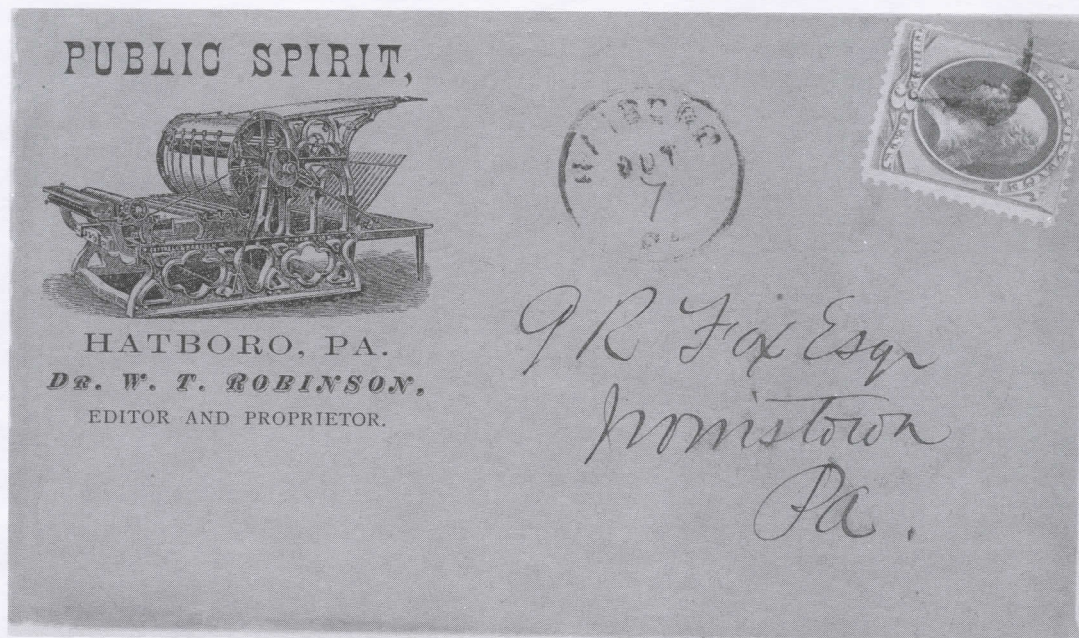 PUBLIC SPIRIT,
HATBORO, PA.
DR. W. T. ROBINSON,
EDITOR AND PROPRIETOR.
HATBORO
OCT
7
PA
R Fox Esqr
Norristown
Pa.
POSTAGE